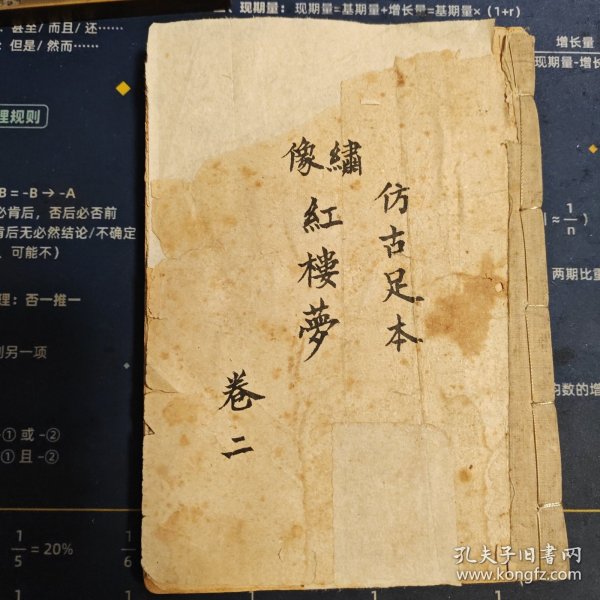 仿古足本
繡像
紅樓夢
卷二
現期量：現期量=基期量+增长量=基期量×（1+r）
甚至/ 而且/ 还……
：但是/ 然而……
理规则
B = -B → -A
必肯后，否后必否前
肯后无必然结论/不确定
、可能不）
理：否一推一
到另一项
-① 或 -②
① 且 -②
1/5 = 20%
1/6
增长量
现期量-增长
≈ 1/n )
两期比重
均数的增
孔夫子旧书网
www.kongfz.com